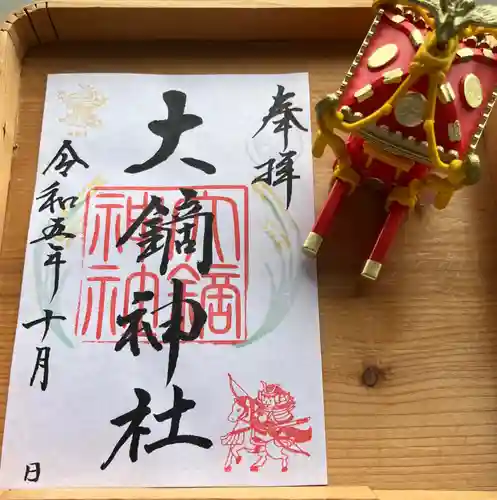 奉拝
大鏑神社
大鏑
神社
令和五年十月
日